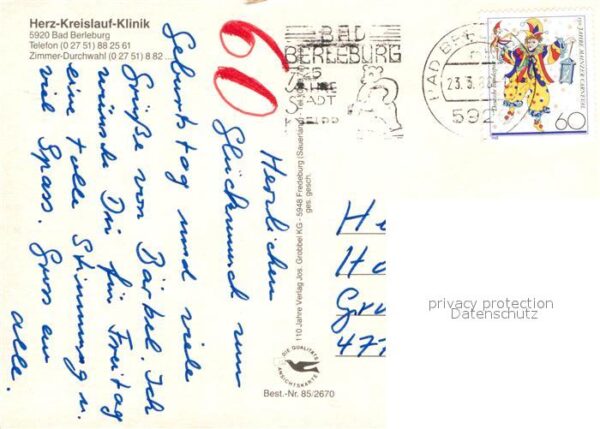 Herz-Kreislauf-Klinik
5920 Bad Berleburg
Telefon (0 27 51) 88 25 61
Zimmer-Durchwahl (0 27 51) 8 82 ...
60
BAD
BERLEBURG
JAHRE
STADT
BAD BE
23.3.8
592
150 JAHRE MAINZER CARNEVAL
Deutsche Bundespost
60
Herzlichen
Glückwunsch zum
Geburtstag und viele
Grüße von Bärbel. Ich
wünsche Dir für Freitag
eine tolle Stimmung u.
viel Spass. Gruss an
alle.
110 Jahre Verlag Jos. Grobbel KG - 5948 Fredeburg (Sauerland)
ges. gesch.
DIE QUALITÄTS
ANSICHTSKARTE
Best.-Nr. 85/2670
He
Ho
Gru
477
privacy protection
Datenschutz